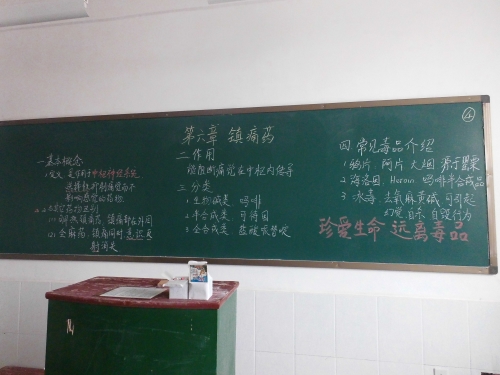 第六章 镇痛药
一 基本概念
1 定义 是作用于中枢神经系统
选择性抑制痛觉而不
影响感觉的药物
2 与其它药物区别
镇痛药、镇痛部在外周
(2) 全麻药、镇痛同时意识丧
二 作用
能阻断痛觉在中枢内传导
三 分类
1 生物碱类 吗啡
2 半合成类 可待因
3 全合成类 盐酸哌替啶
④
四 常见毒品介绍
1 鸦片、阿片 大烟 源于罂粟
2 海洛因、Heroin 吗啡半合成品
3 冰毒、去氧麻黄碱 可引起
幻觉 自杀 自毁行为
珍爱生命 远离毒品